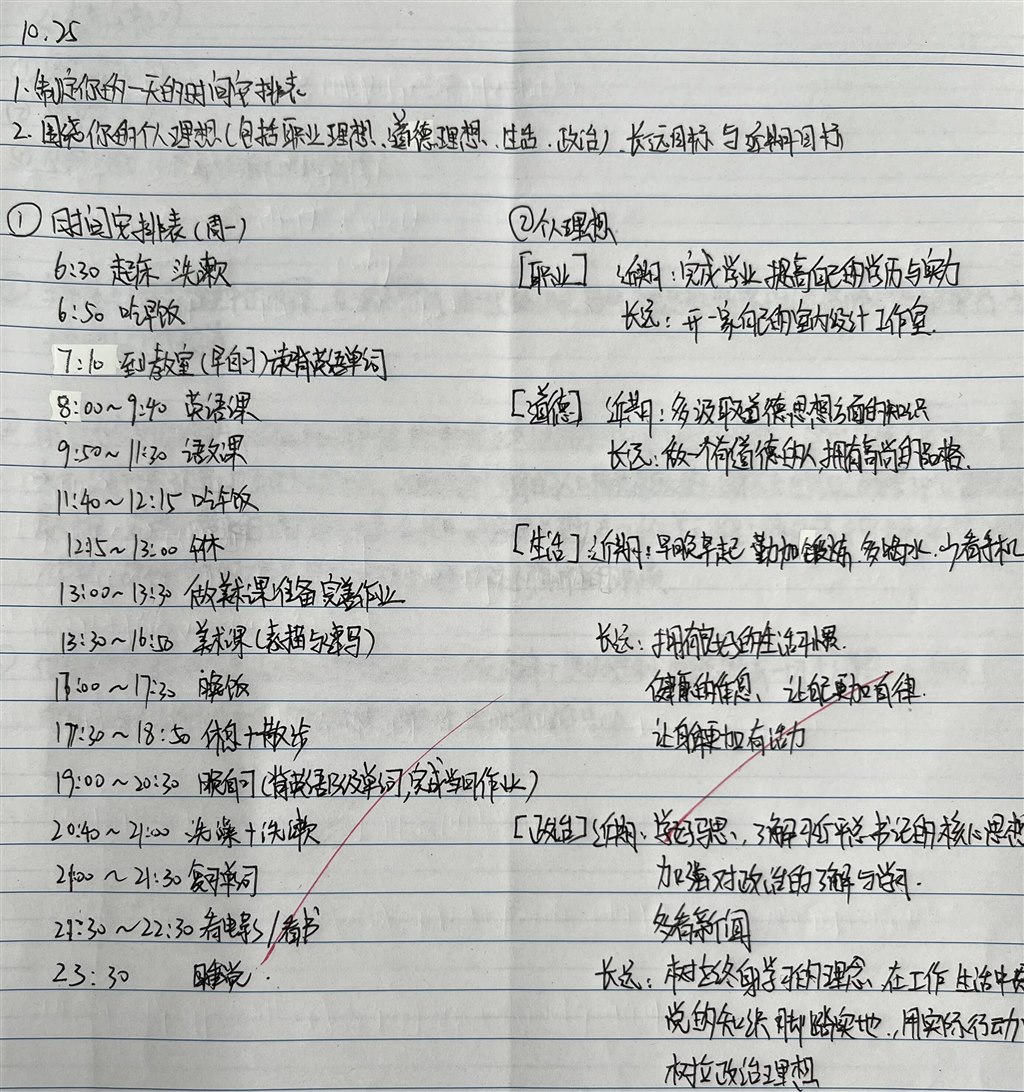 10.25
1. 制定你的一天的时间安排表
2. 围绕你的个人理想(包括职业理想、道德理想、生活、政治)、长远目标与近期目标
① 时间安排表(周一)
6:30 起床 洗漱
6:50 吃早饭
7:10 到教室(早自习)读背英语单词
8:00~9:40 英语课
9:50~11:30 语文课
11:40~12:15 吃午饭
12:15~13:00 午休
13:00~13:30 做美术课准备 完善作业
13:30~16:50 美术课(素描与速写)
17:00~17:30 晚饭
17:30~18:50 休息+散步
19:00~20:30 晚自习(背英语以及单词,完成当日作业)
20:40~21:00 洗澡+洗漱
21:00~21:30 复习单词
21:30~22:30 看电影/看书
23:30 睡觉.
②个人理想
[职业] 近期:完成学业 提高自己的学历与实力
长远:开一家自己的室内设计工作室.
[道德] 近期:多汲取道德思想方面的知识
长远:做一个有道德的人 拥有高尚的品格.
[生活] 近期:早晚早起 勤加锻炼.多喝水.少看手机
长远:拥有良好的生活习惯.
健康的作息、让自己更加自律.
让身体更加有活力
[政治] 近期:学习马思、了解习近平总书记的核心思想
加强对政治的了解与学习.
多看新闻
长远:树立终身学习的理念、在工作 生活中
党的知识 脚踏实地.,用实际行动
树立政治理想